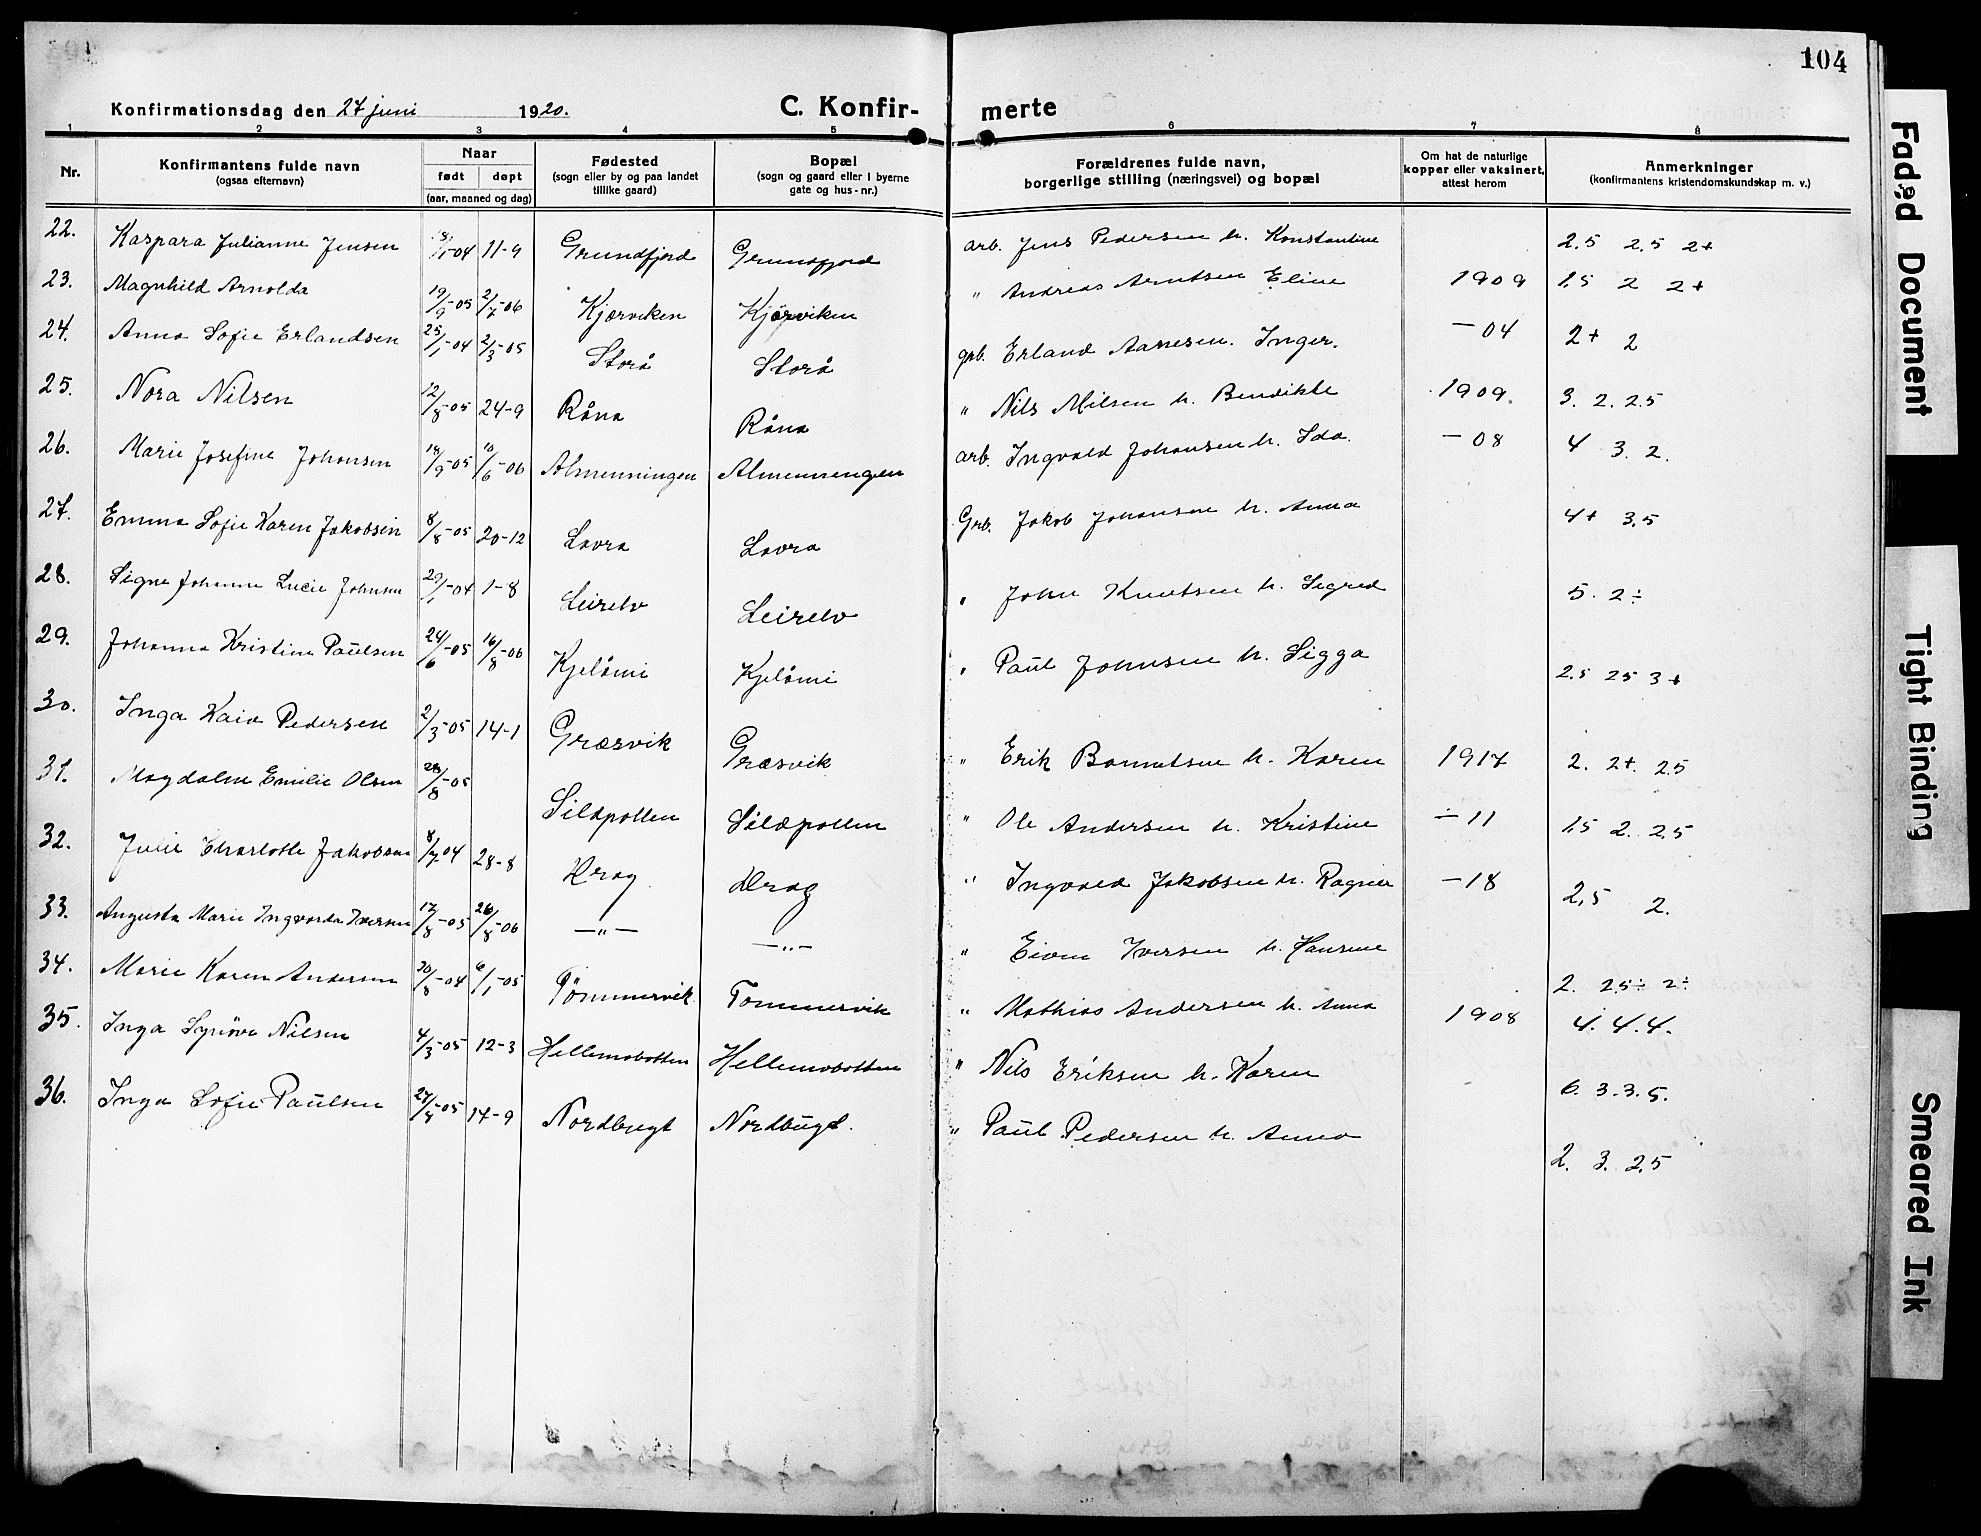 104
Konfirmationsdag den 27 juni 1920.
C. Konfirmerte
1 2 3 4 5 6 7 8
Nr.
Konfirmantens fulde navn
(ogsaa efternavn)
Naar
født døpt
(aar, maaned og dag)
Fødested
(sogn eller by og paa landet
tillike gaard)
Bopæl
(sogn og gaard eller i byerne
gate og hus-nr.)
Forældrenes fulde navn,
borgerlige stilling (næringsvei) og bopæl
Om hat de naturlige
kopper eller vaksinert,
attest herom
Anmerkninger
(konfirmantens kristendomskundskap m. v.)
22. Kaspara Julianne Jensen -04 11-9 Grundfjord Grundfjord arb. Jens Pedersen h. Konstantine 2.5 2.5 2+
23. Magnhild Arnolda 19/9-05 2/7-06 Kjærviken Kjærviken " Andreas Arntsen Eline 1909 1.5 2 2+
24. Anna Sofie Erlandsen 25/1-04 2/3-05 Storå Storå grb. Erland Aanesen. Inger. -04 2+ 2
25. Nora Nilsen 12/8-05 24-9 Råna Råna " Nils Nilsen h. Bendikte 1909. 3. 2. 2.5
26. Marie Josefine Johansen 19/9-05 10/6-06 Almenningen Almenningen arb. Ingvald Johansen h. Ida. -08 4 3. 2.
27. Emma Sofie Karen Jakobsen 8/8-05 20-12 Lavra Lavra Grb. Jakob Johansen h. Anna 4+ 3.5
28. Signe Johanne Lucie Johnsen 29/1-04 1-8 Leirelv Leirelv " John Knutsen h. Sigred 5. 2÷
29. Johanna Kristine Paulsen 24/6-05 16/8-06 Kjelåmi Kjelåmi " Paul Johnsen h. Sigga 2.5 25 3+
30. Inga Kaia Pedersen 2/3-05 14-1 Græsvik Græsvik " Erik h. Karen 1917 2. 2+. 2.5
31. Magdalene Emilie Olsen 28/8-05 Sildpollen Sildpollen " Ole Andersen h. Kristine -11 1.5 2. 2.5
32. Julie Charlotte Jakobsen 8/7-04 28-8 Drag Drag " Ingvald Jakobsen h. Ragna -18 2,5 2.
33. Augusta Marie Ingvarda Iversen 17/8-05 26/8-06 -"- -"- " Eivin Iversen h. Hansine 2. 2.5÷ 2÷
34. Marie Karen Andersen 30/8-04 6/1-05 Tømmervik Tømmervik " Mathias Andersen h. Anna 1908 4. 4. 4.
35. Inga Synøve Nilsen 4/3-05 12-3 Hellemobotten Hellemobotten " Nils Eriksen h. Karen 6. 3. 3. 5.
36. Inga Sofie Paulsen -05 14-9 Nordbugt Nordbugt. " Paul Pedersen h. Anna 2. 3. 2.5
Faded Document
Tight Binding
Smeared Ink